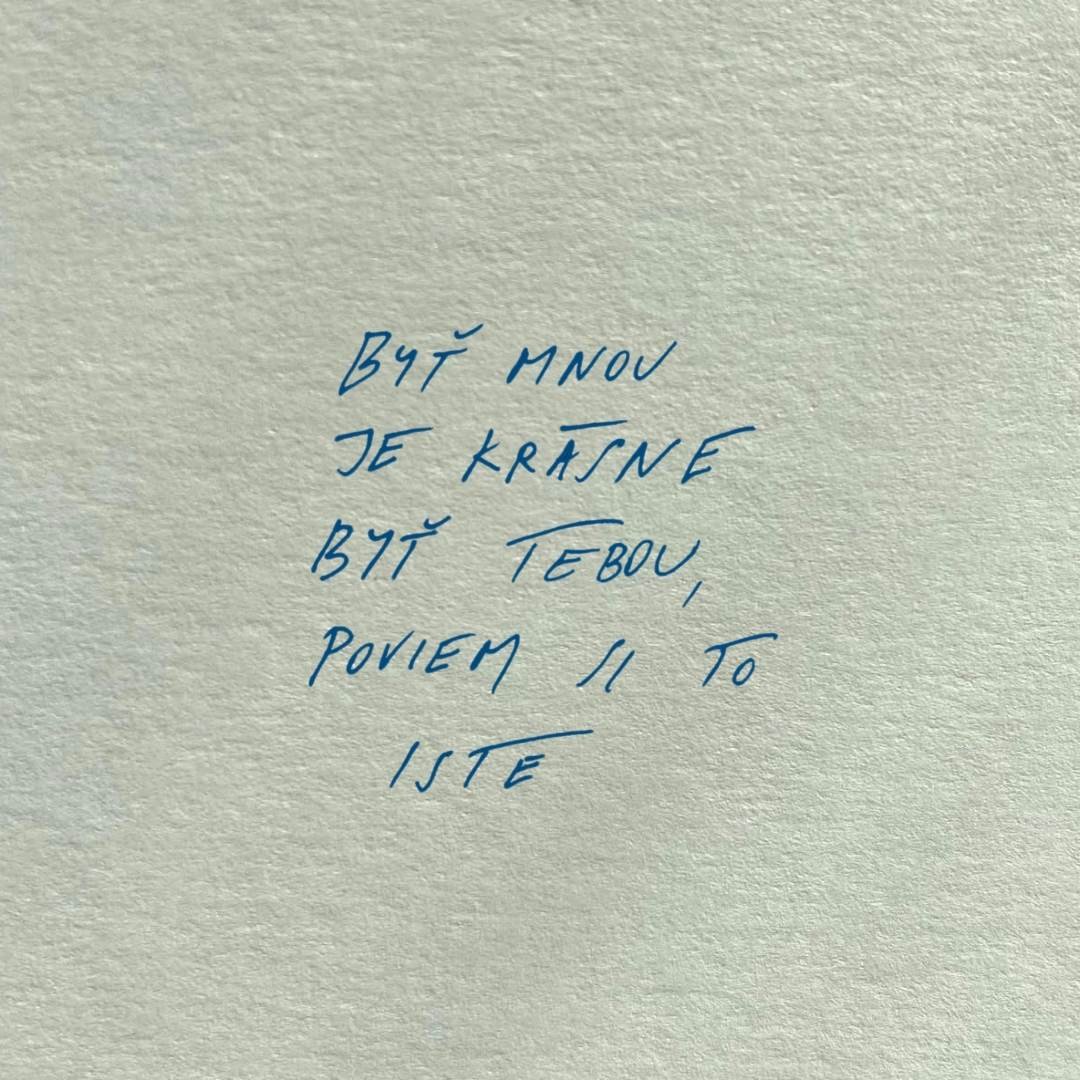 BYŤ MNOU
JE KRÁSNE
BYŤ TEBOU,
POVIEM SI TO
ISTE